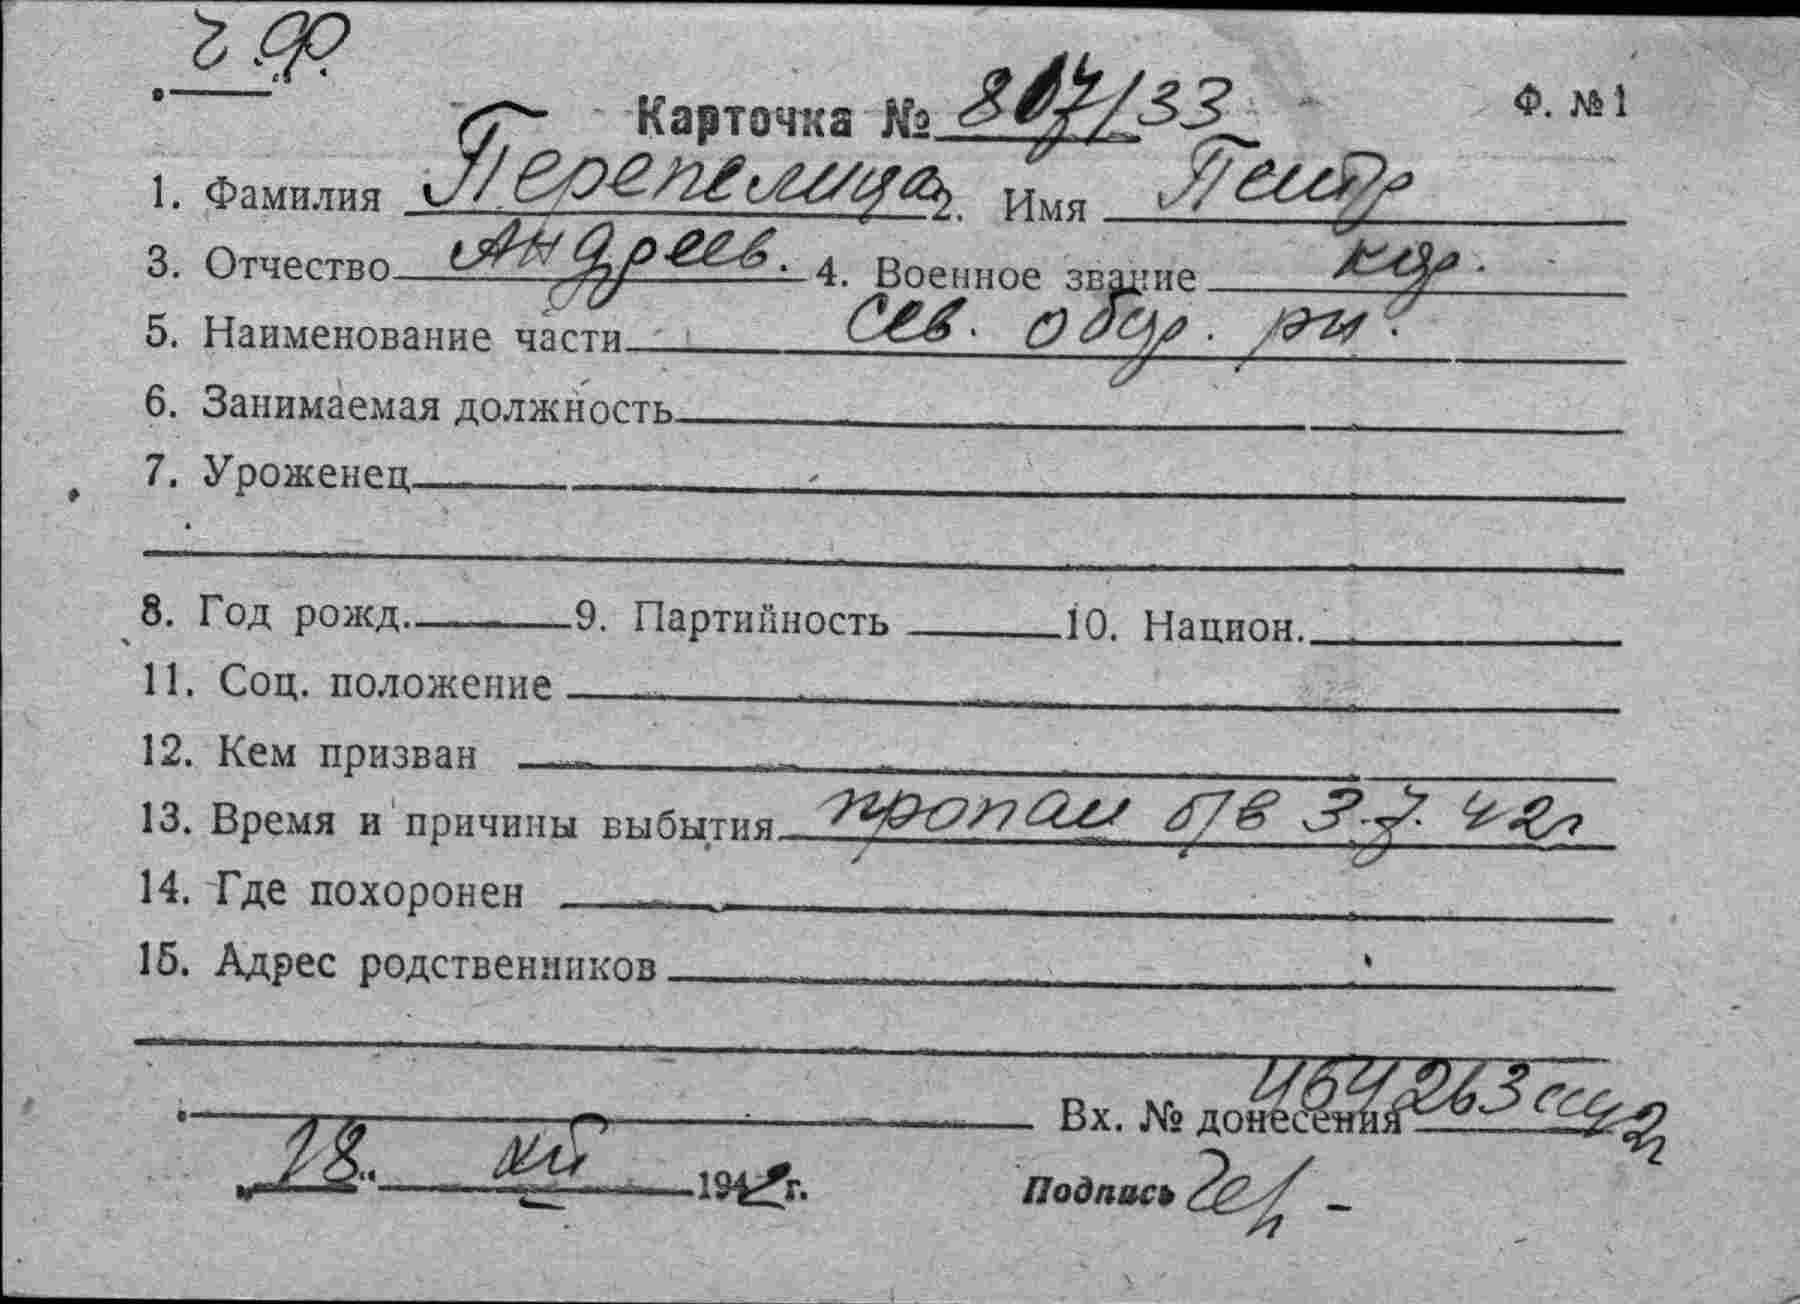 Ф. №1
Карточка № 817/33
1. Фамилия Перепелица 2. Имя Петр
3. Отчество Андреев. 4. Военное звание кр.
5. Наименование части Сев. обор. р-н.
6. Занимаемая должность
7. Уроженец
8. Год рожд. 9. Партийность 10. Национ.
11. Соц. положение
12. Кем призван
13. Время и причины выбытия пропал б/в 3.7.42г
14. Где похоронен
15. Адрес родственников
Вх. № донесения
„18“ 194 г. Подпись